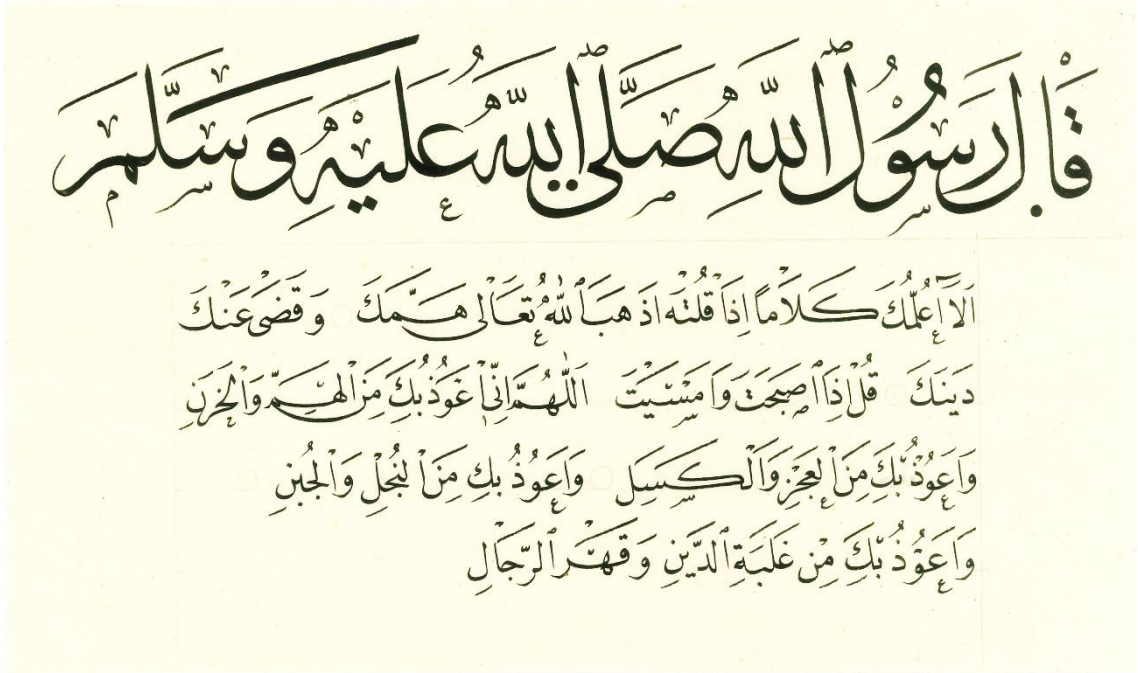 قَالَ رَسُولُ ٱللّٰهِ صَلَّى ٱللّٰهُ عَلَيْهِ وَسَلَّمَ
اَلَا اُعَلِّمُكَ كَلَامًا اِذَا قُلْتَهُ اَذْهَبَ ٱللّٰهُ تَعَالٰى هَمَّكَ وَقَضٰى عَنْكَ
دَيْنَكَ قُلْ اِذَا اَصْبَحْتَ وَاَمْسَيْتَ اَللّٰهُمَّ اِنِّي اَعُوذُ بِكَ مِنَ الْهَمِّ وَالْحَزَنِ
وَاَعُوذُ بِكَ مِنَ الْعَجْزِ وَالْكَسَلِ وَاَعُوذُ بِكَ مِنَ الْبُخْلِ وَالْجُبْنِ
وَاَعُوذُ بِكَ مِنْ غَلَبَةِ ٱلدَّيْنِ وَقَهْرِ ٱلرِّجَالِ